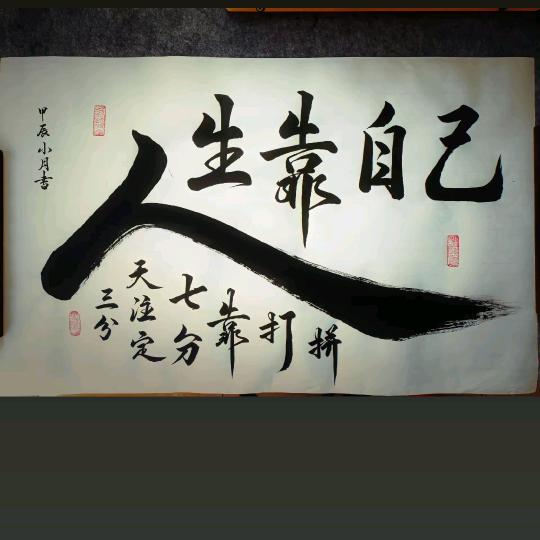 人生靠自己
三分
天注定
七分
靠
打
拼
甲辰小月书